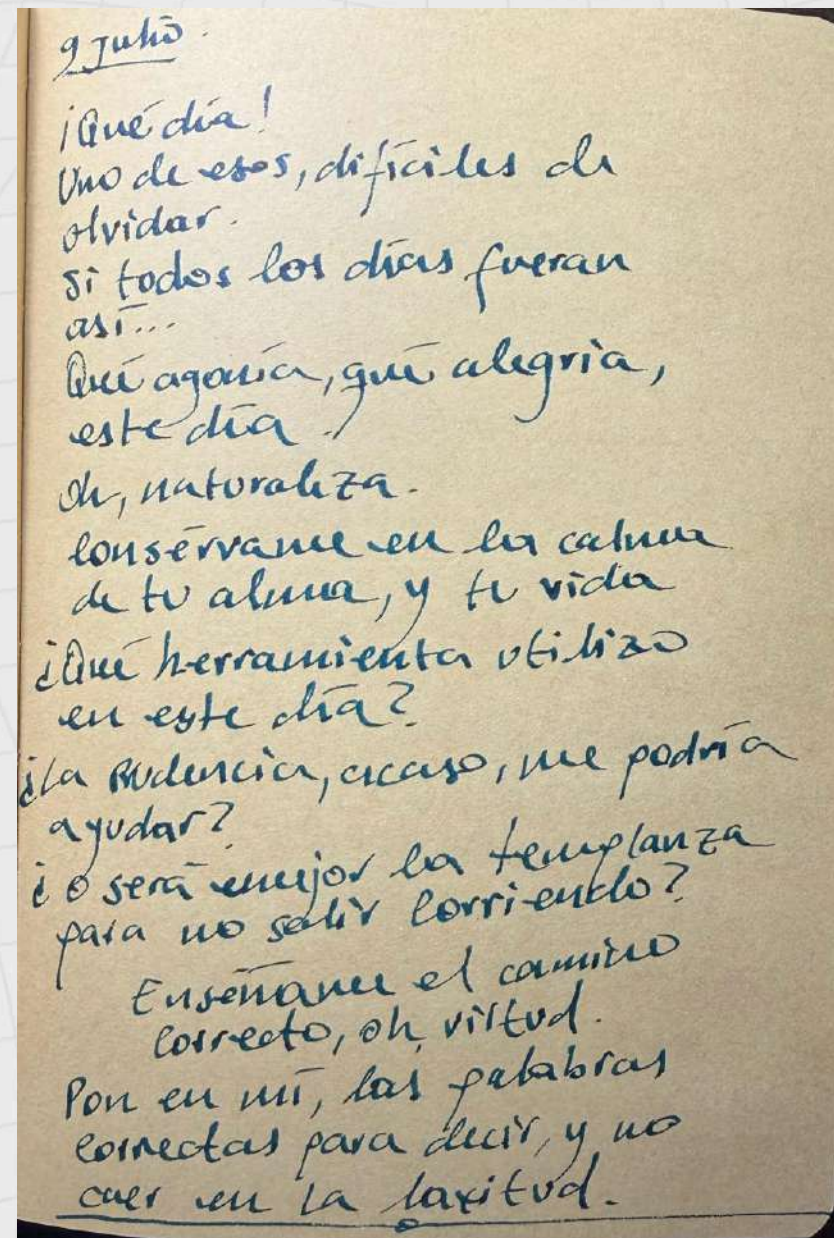 9 Julio.
¡Qué día!
Uno de esos, difíciles de
olvidar.
Si todos los días fueran
así...
Qué agonía, qué alegría,
este día.
Oh, naturaleza.
Consérvame en la calma
de tu alma, y tu vida
¿Qué herramienta utilizo
en este día?
¿La Prudencia, acaso, me podría
ayudar?
¿o será mejor la templanza
para no salir corriendo?
Enséñame el camino
correcto, oh, virtud.
Pon en mí, las palabras
correctas para decir, y no
caer en la laxitud.